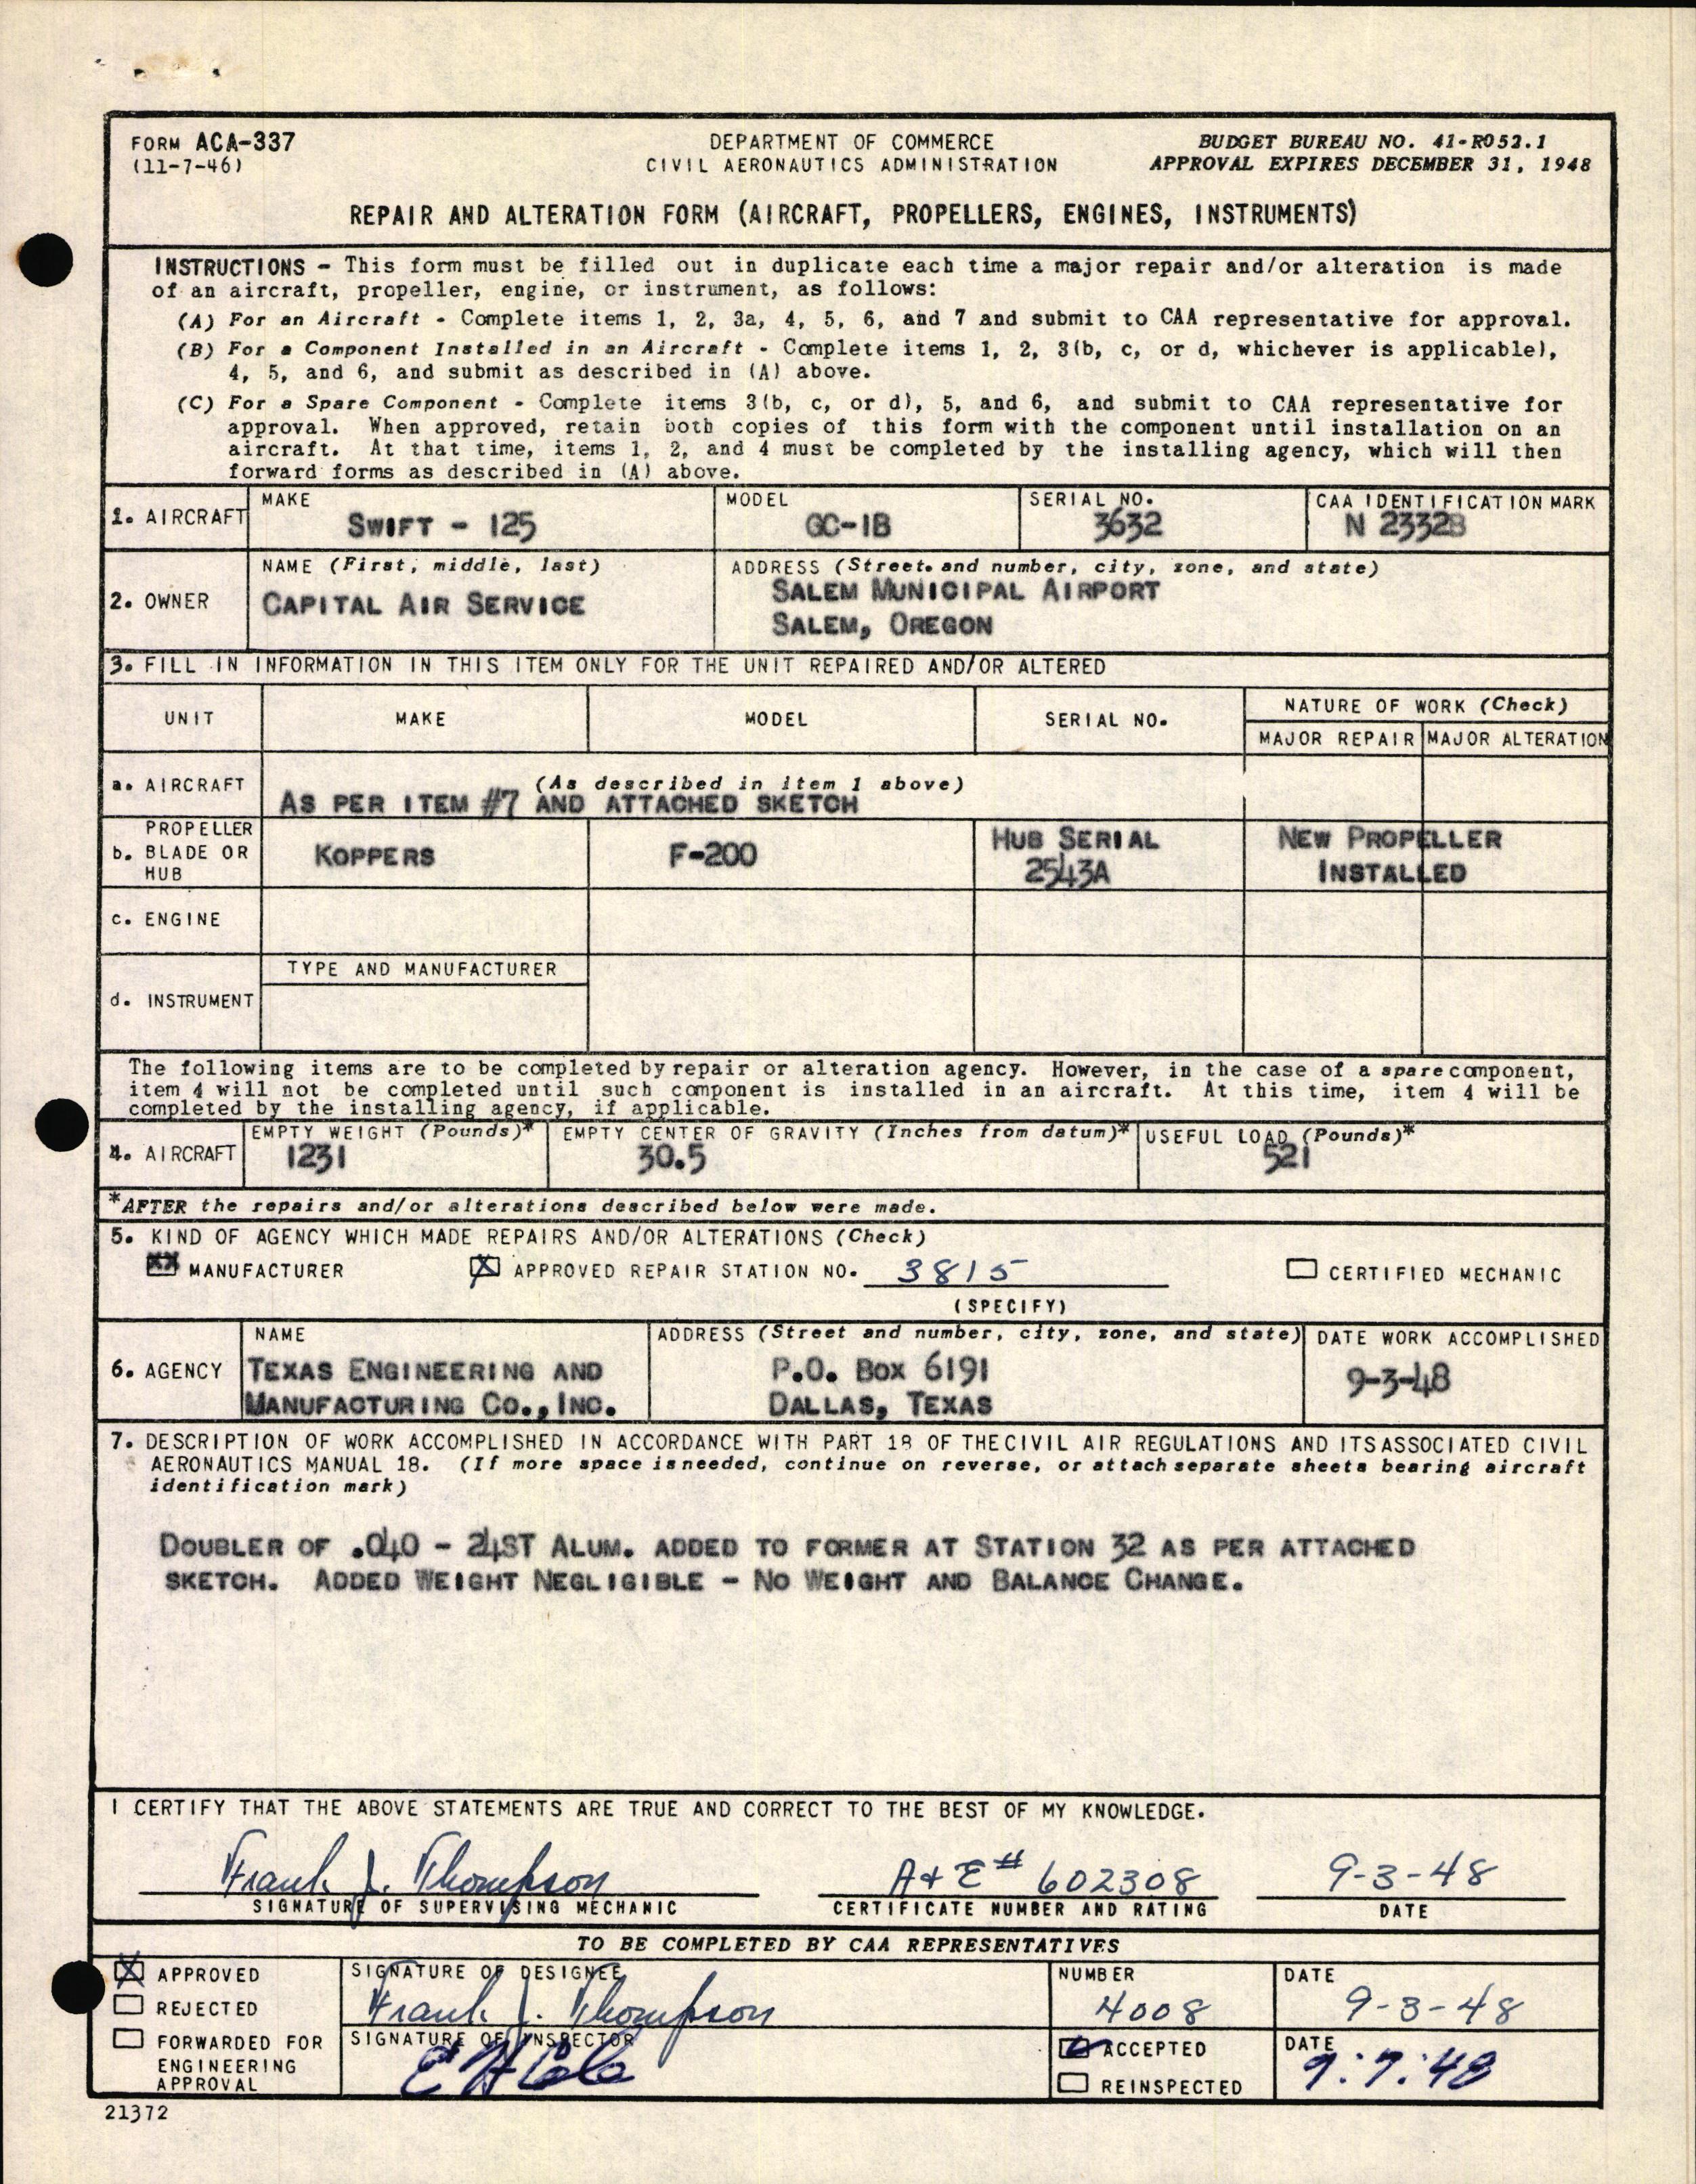 FORM ACA-337
(11-7-46)
DEPARTMENT OF COMMERCE
CIVIL AERONAUTICS ADMINISTRATION
BUDGET BUREAU NO. 41-R052.1
APPROVAL EXPIRES DECEMBER 31, 1948
REPAIR AND ALTERATION FORM (AIRCRAFT, PROPELLERS, ENGINES, INSTRUMENTS)
INSTRUCTIONS - This form must be filled out in duplicate each time a major repair and/or alteration is made
of an aircraft, propeller, engine, or instrument, as follows:
(A) For an Aircraft - Complete items 1, 2, 3a, 4, 5, 6, and 7 and submit to CAA representative for approval.
(B) For a Component Installed in an Aircraft - Complete items 1, 2, 3(b, c, or d, whichever is applicable),
4, 5, and 6, and submit as described in (A) above.
(C) For a Spare Component - Complete items 3(b, c, or d), 5, and 6, and submit to CAA representative for
approval. When approved, retain both copies of this form with the component until installation on an
aircraft. At that time, items 1, 2, and 4 must be completed by the installing agency, which will then
forward forms as described in (A) above.
1. AIRCRAFT
MAKE
SWIFT - 125
MODEL
GC-1B
SERIAL NO.
3632
CAA IDENTIFICATION MARK
N 2332B
2. OWNER
NAME (First, middle, last)
CAPITAL AIR SERVICE
ADDRESS (Street and number, city, zone, and state)
SALEM MUNICIPAL AIRPORT
SALEM, OREGON
3. FILL IN INFORMATION IN THIS ITEM ONLY FOR THE UNIT REPAIRED AND/OR ALTERED
UNIT
MAKE
MODEL
SERIAL NO.
NATURE OF WORK (Check)
MAJOR REPAIR
MAJOR ALTERATION
a. AIRCRAFT
(As described in item 1 above)
AS PER ITEM #7 AND ATTACHED SKETCH
PROPELLER
b. BLADE OR
HUB
KOPPERS
F-200
HUB SERIAL
2543A
NEW PROPELLER
INSTALLED
c. ENGINE
d. INSTRUMENT
TYPE AND MANUFACTURER
The following items are to be completed by repair or alteration agency. However, in the case of a spare component,
item 4 will not be completed until such component is installed in an aircraft. At this time, item 4 will be
completed by the installing agency, if applicable.
4. AIRCRAFT
EMPTY WEIGHT (Pounds)*
1231
EMPTY CENTER OF GRAVITY (Inches from datum)*
30.5
USEFUL LOAD (Pounds)*
521
*AFTER the repairs and/or alterations described below were made.
5. KIND OF AGENCY WHICH MADE REPAIRS AND/OR ALTERATIONS (Check)
XX MANUFACTURER
X APPROVED REPAIR STATION NO. 3815
CERTIFIED MECHANIC
(SPECIFY)
6. AGENCY
NAME
TEXAS ENGINEERING AND
MANUFACTURING CO., INC.
ADDRESS (Street and number, city, zone, and state)
P.O. BOX 6191
DALLAS, TEXAS
DATE WORK ACCOMPLISHED
9-3-48
7. DESCRIPTION OF WORK ACCOMPLISHED IN ACCORDANCE WITH PART 18 OF THE CIVIL AIR REGULATIONS AND ITS ASSOCIATED CIVIL
AERONAUTICS MANUAL 18. (If more space is needed, continue on reverse, or attach separate sheets bearing aircraft
identification mark)
DOUBLER OF .040 - 24ST ALUM. ADDED TO FORMER AT STATION 32 AS PER ATTACHED
SKETCH. ADDED WEIGHT NEGLIGIBLE - NO WEIGHT AND BALANCE CHANGE.
I CERTIFY THAT THE ABOVE STATEMENTS ARE TRUE AND CORRECT TO THE BEST OF MY KNOWLEDGE.
Frank J. Thompson
A & E # 602308
9-3-48
SIGNATURE OF SUPERVISING MECHANIC
CERTIFICATE NUMBER AND RATING
DATE
TO BE COMPLETED BY CAA REPRESENTATIVES
X APPROVED
REJECTED
FORWARDED FOR
ENGINEERING
APPROVAL
SIGNATURE OF DESIGNEE
Frank J. Thompson
NUMBER
4008
DATE
9-3-48
SIGNATURE OF INSPECTOR
ACCEPTED
REINSPECTED
DATE
9:7:48
21372